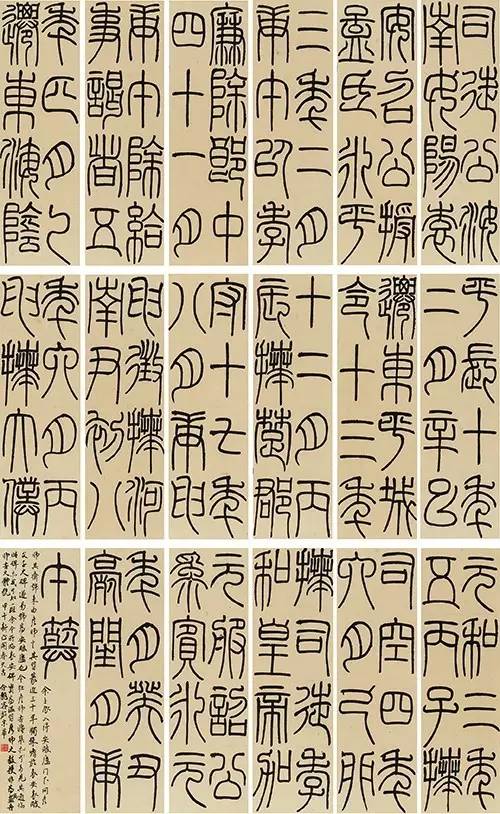 司徒公汝
南女陽袁
安召公授
孟氏永平
三年二月
庚午以孝
廉除郎中
四十一月
庚午除給
事謁者五
年四月乙
遷東海陰
平長十年
二月辛巳
遷東平城
令十三年
十二月丙
辰拜楚郡
守十七年
八月庚申
申徵拜河
南尹初八
年六月丙
申拜大僕
元三年五
月丙子拜
司空四年
六月己卯
拜司徒孝
和皇帝加
元服詔公
為賓元四
年月癸丑
薨閏月庚
午葬